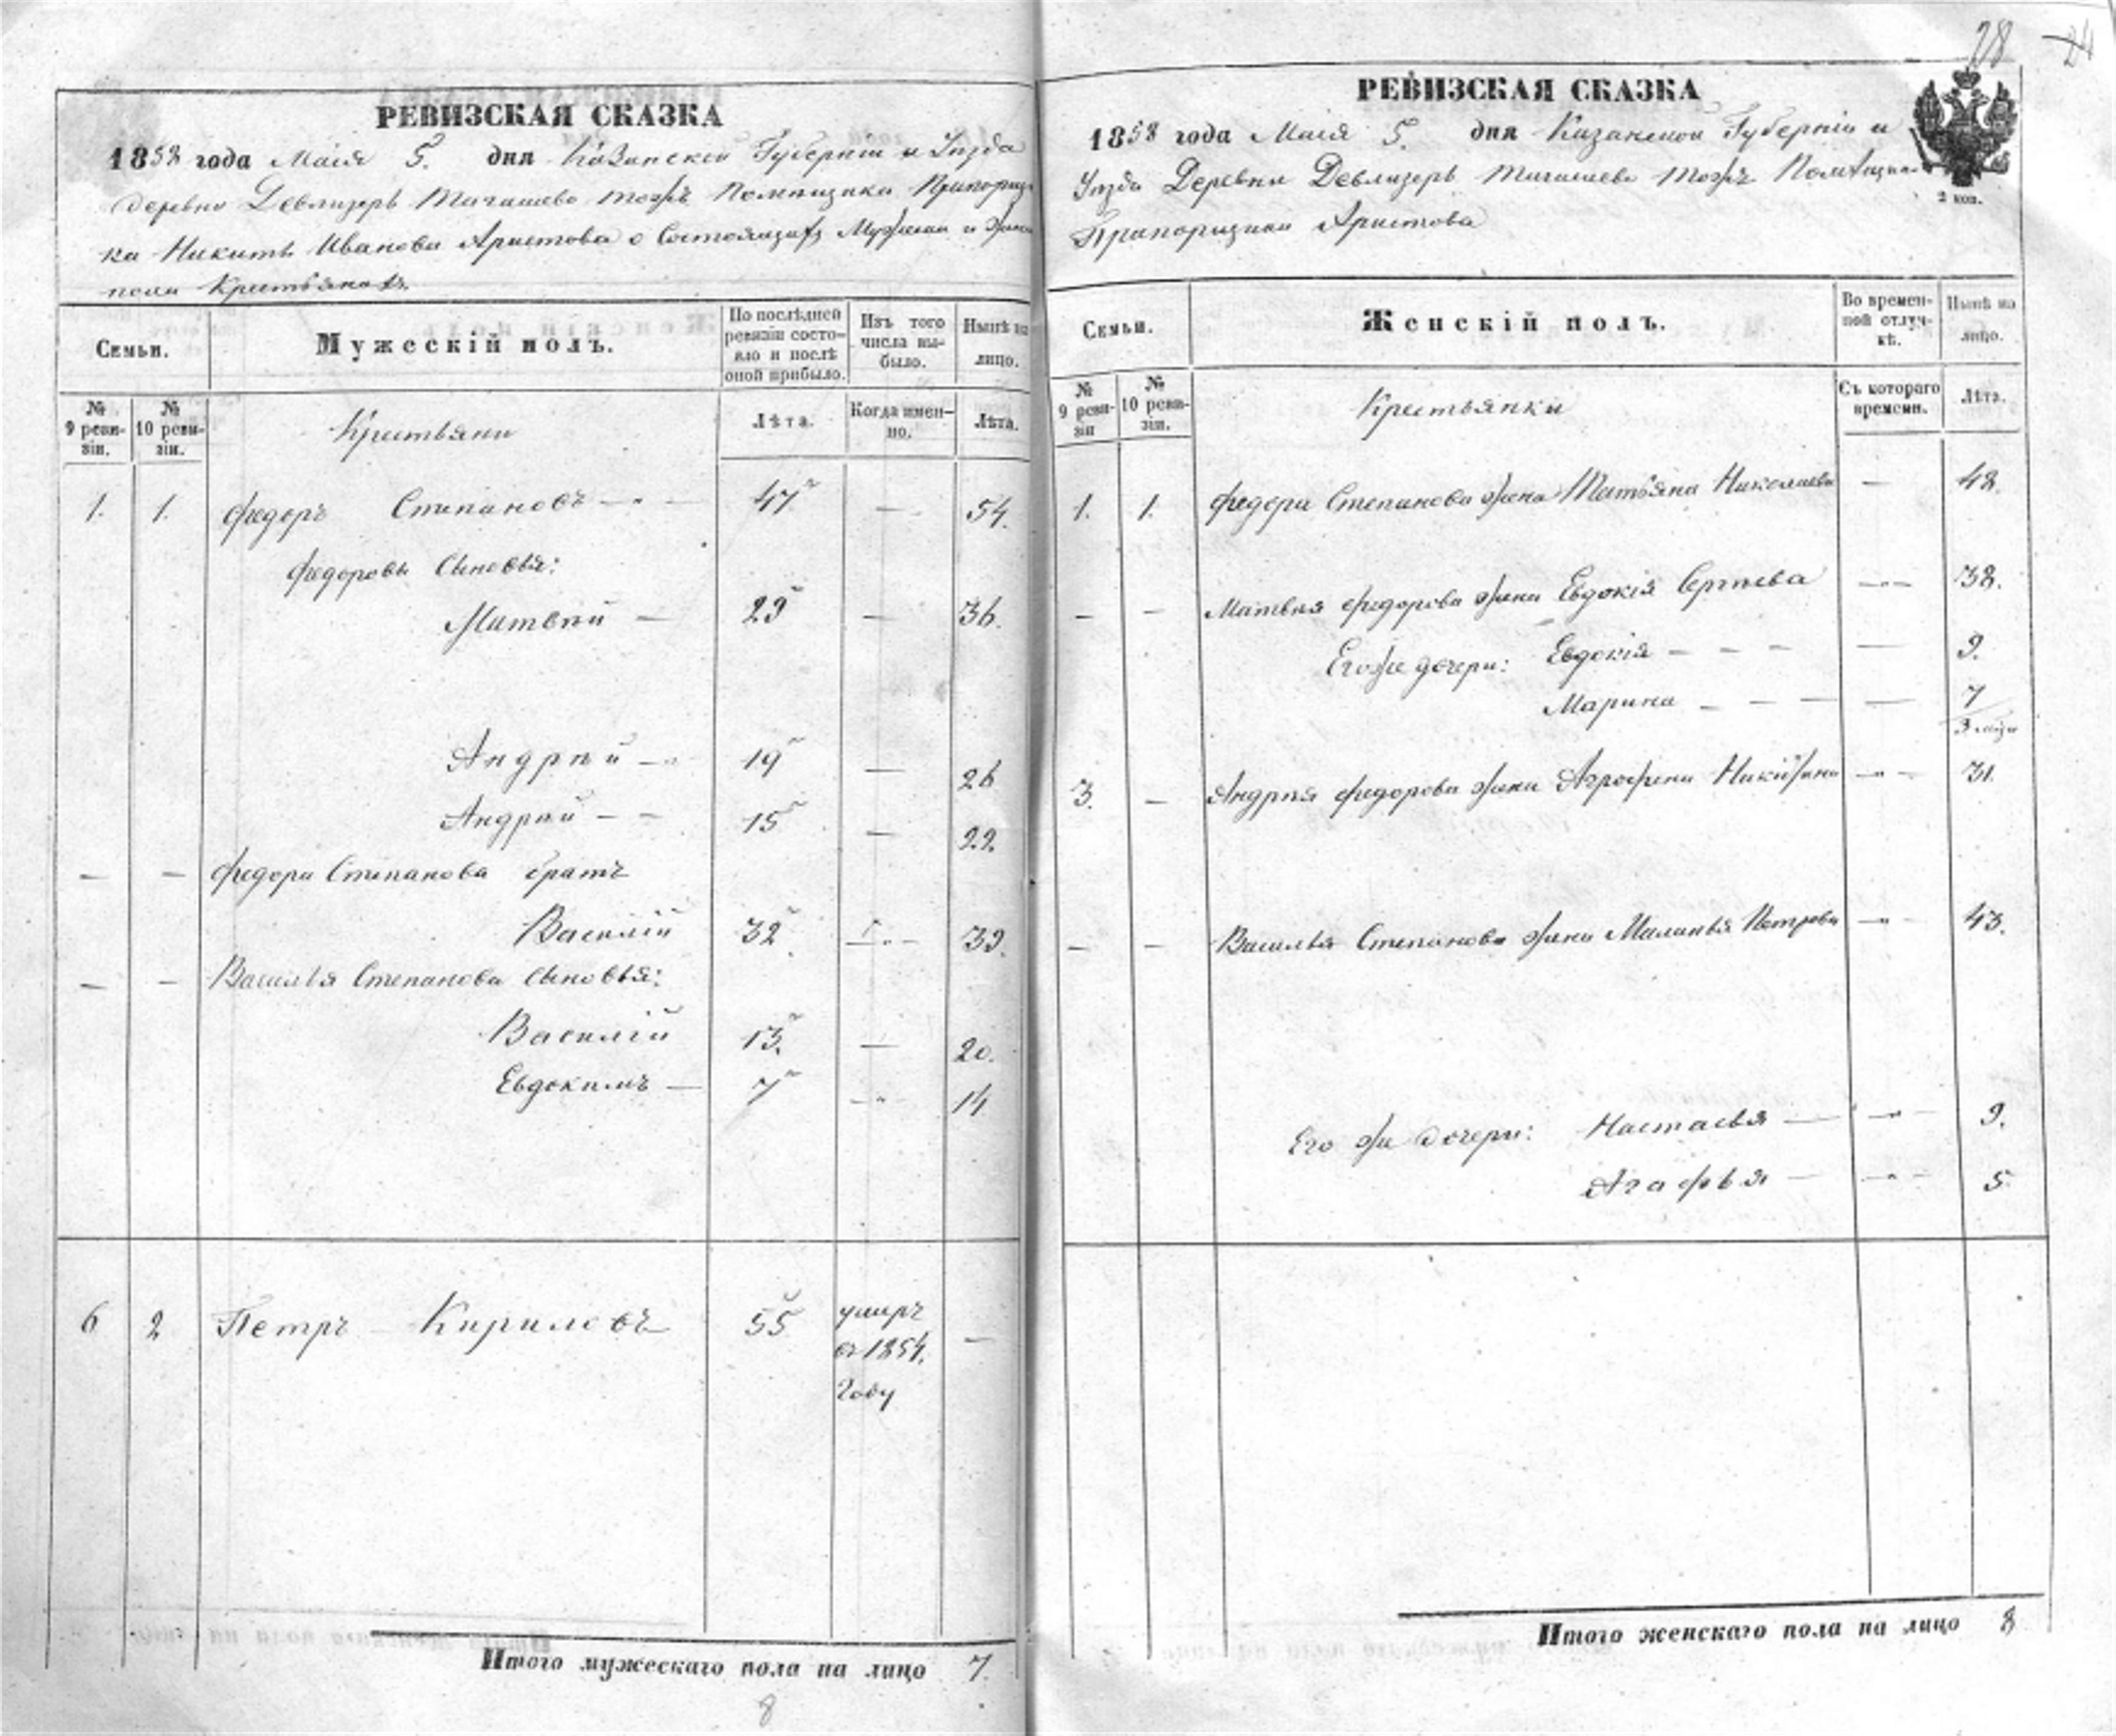 РЕВИЗСКАЯ СКАЗКА
1858 года Маія 5. дня Казанской Губерніи и Уѣзда
деревни Девлизерь Тагашево тожъ Помѣщика Прапорщи-
ка Никиты Иванова Аристова о Состоящихъ Мужеска и Женска
пола Крестьянахъ
Семьи.
Мужескій полъ.
По послѣдней ревизіи состо-
яло и послѣ оной прибыло.
Изъ того числа вы-
было.
Нынѣ на лицо.
№ 9 реви-
зіи.
№ 10 реви-
зіи.
Крестьяни
Лѣта.
Когда имен-
но.
Лѣта.
1. 1. Федоръ Степановъ — 47 — 54.
Федоровы Сыновья:
Матвѣй — 29 — 36.
Андрѣй — 19 — 26
Андрѣй — — 15 — 22.
— — Федора Степанова братъ
Василій 32. — 39.
— — Василья Степанова сыновья:
Василій 13. — 20.
Евдокимъ — 7 — 14
6 2 Петръ Кириловъ 55 умеръ —
въ 1854.
Году
Итого мужескаго пола на лицо 7.
8
28 24
РЕВИЗСКАЯ СКАЗКА
1858 года Маія 5. дня Казанской Губерніи и
Уѣзда Деревни Девлизерь Тагашево тожъ Помѣщика
Прапорщика Аристова
2 коп.
Семьи.
Женскій полъ.
Во времен-
ной отлуч-
кѣ.
Нынѣ на лицо.
№ 9 реви-
зіи
№ 10 реви-
зіи.
Крестьянки
Съ котораго времени.
Лѣта.
1. 1. Федора Степанова жена Татьяна Николаева — 48.
— — Матвѣя Федорова жена Евдокія Сергѣева — 38.
Егоже дочери: Евдокія — — — — 9.
Марина — — — — 7
3. — Андрѣя Федорова жена Аграфена Никитина — 31.
— — Василья Степанова жена Маланья Петрова — 43.
Его же дочери: Настасья — — 9.
Агафья — — 5
Итого женскаго пола на лицо 8